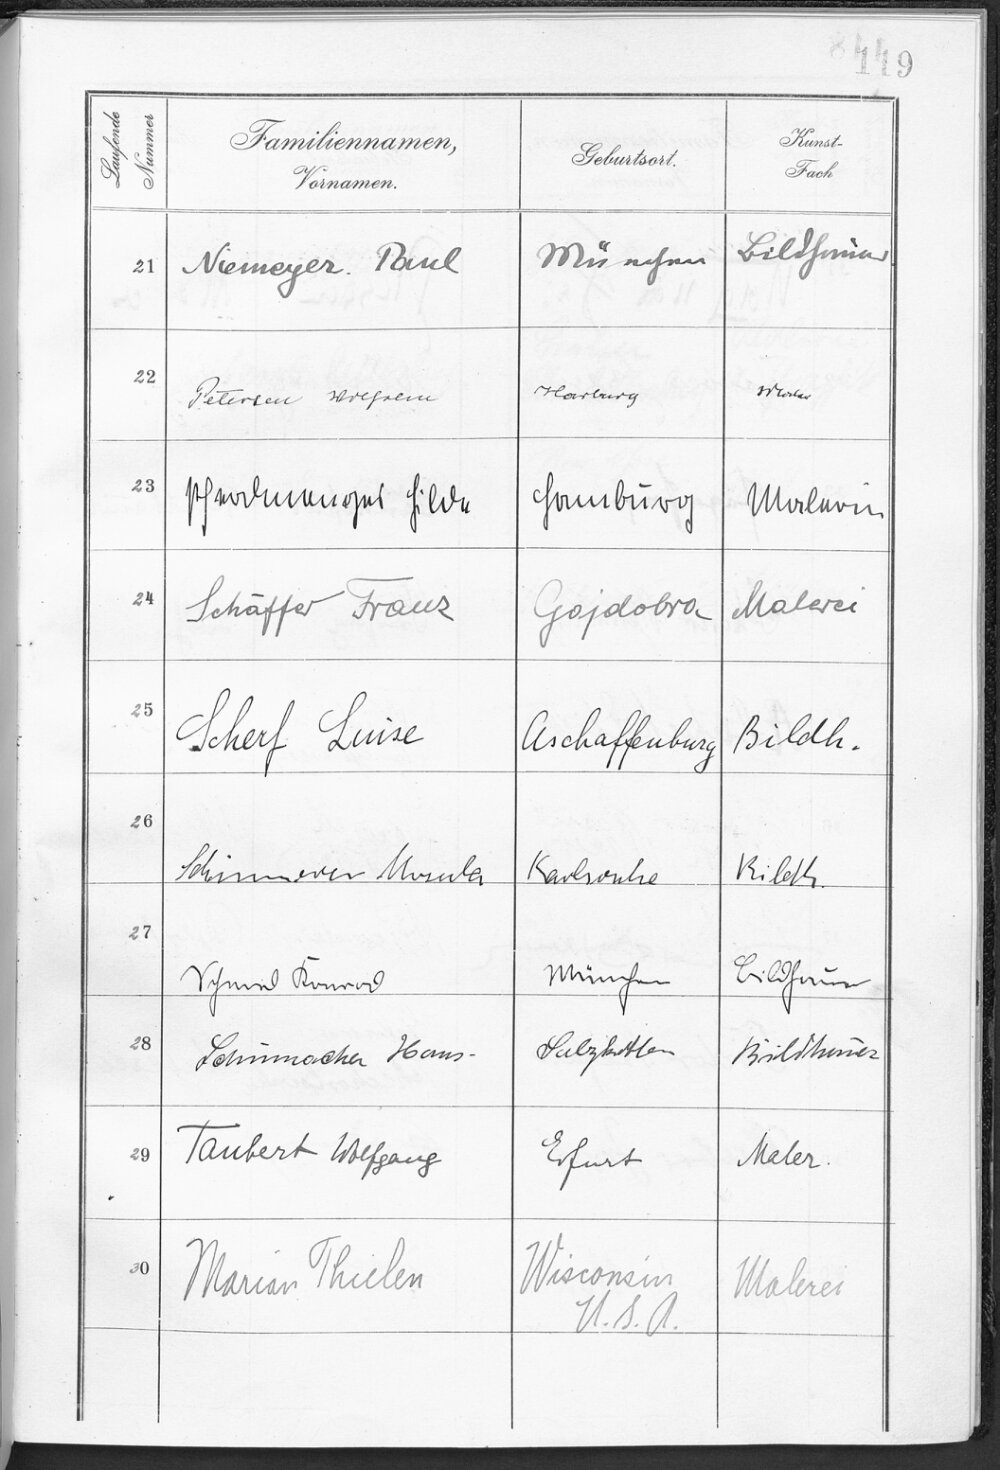 149
Laufende Nummer
Familiennamen, Vornamen.
Geburtsort.
Kunst-Fach
21 Niemeyer. Paul München Bildhauer
22 Petersen Wilhelm Harburg Maler
23 Pferdmenges Hilde Hamburg Malerin
24 Schäffer Franz Gajdobra Malerei
25 Scherf Luise Aschaffenburg Bildh.
26 Schirmer Ursula Karlsruhe Bildh.
27 Schmid Konrad München Bildhauer
28 Schumacher Hans- Salzkotten Bildhauer
29 Taubert Wolfgang Erfurt Maler.
30 Marian Thielen Wisconsin Malerei
U.S.A.